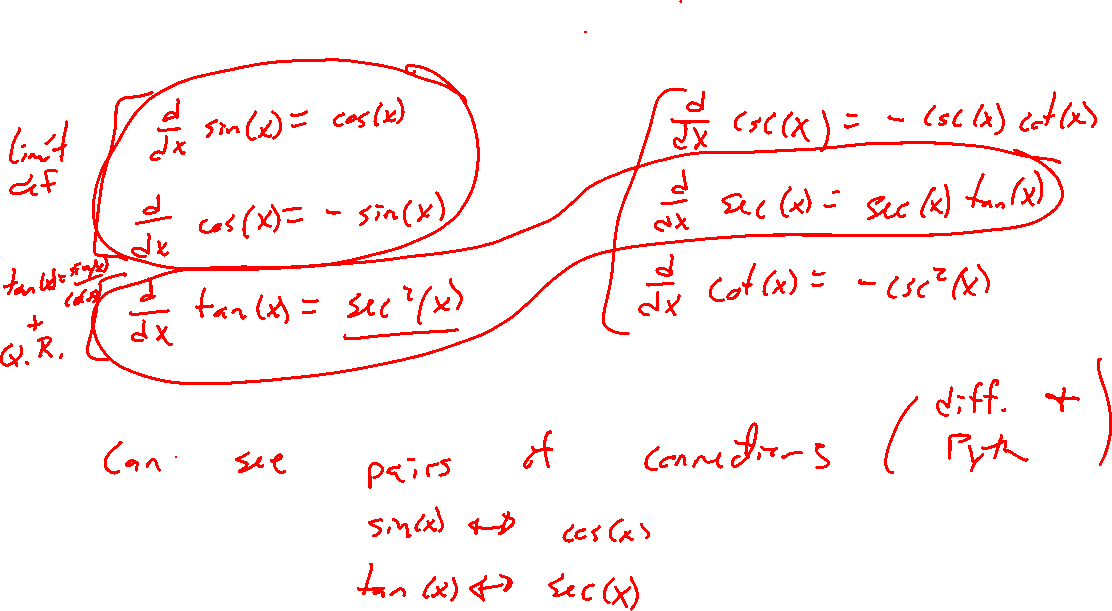 Limit def
d/dx sin(x) = cos(x)
d/dx cos(x) = - sin(x)
tan(x) = sin(x)/cos(x) + Q.R.
d/dx tan(x) = sec²(x)
d/dx csc(x) = - csc(x) cot(x)
d/dx sec(x) = sec(x) tan(x)
d/dx cot(x) = - csc²(x)
Can see pairs of connections (diff. + Pyth)
sin(x) ↔ cos(x)
tan(x) ↔ sec(x)